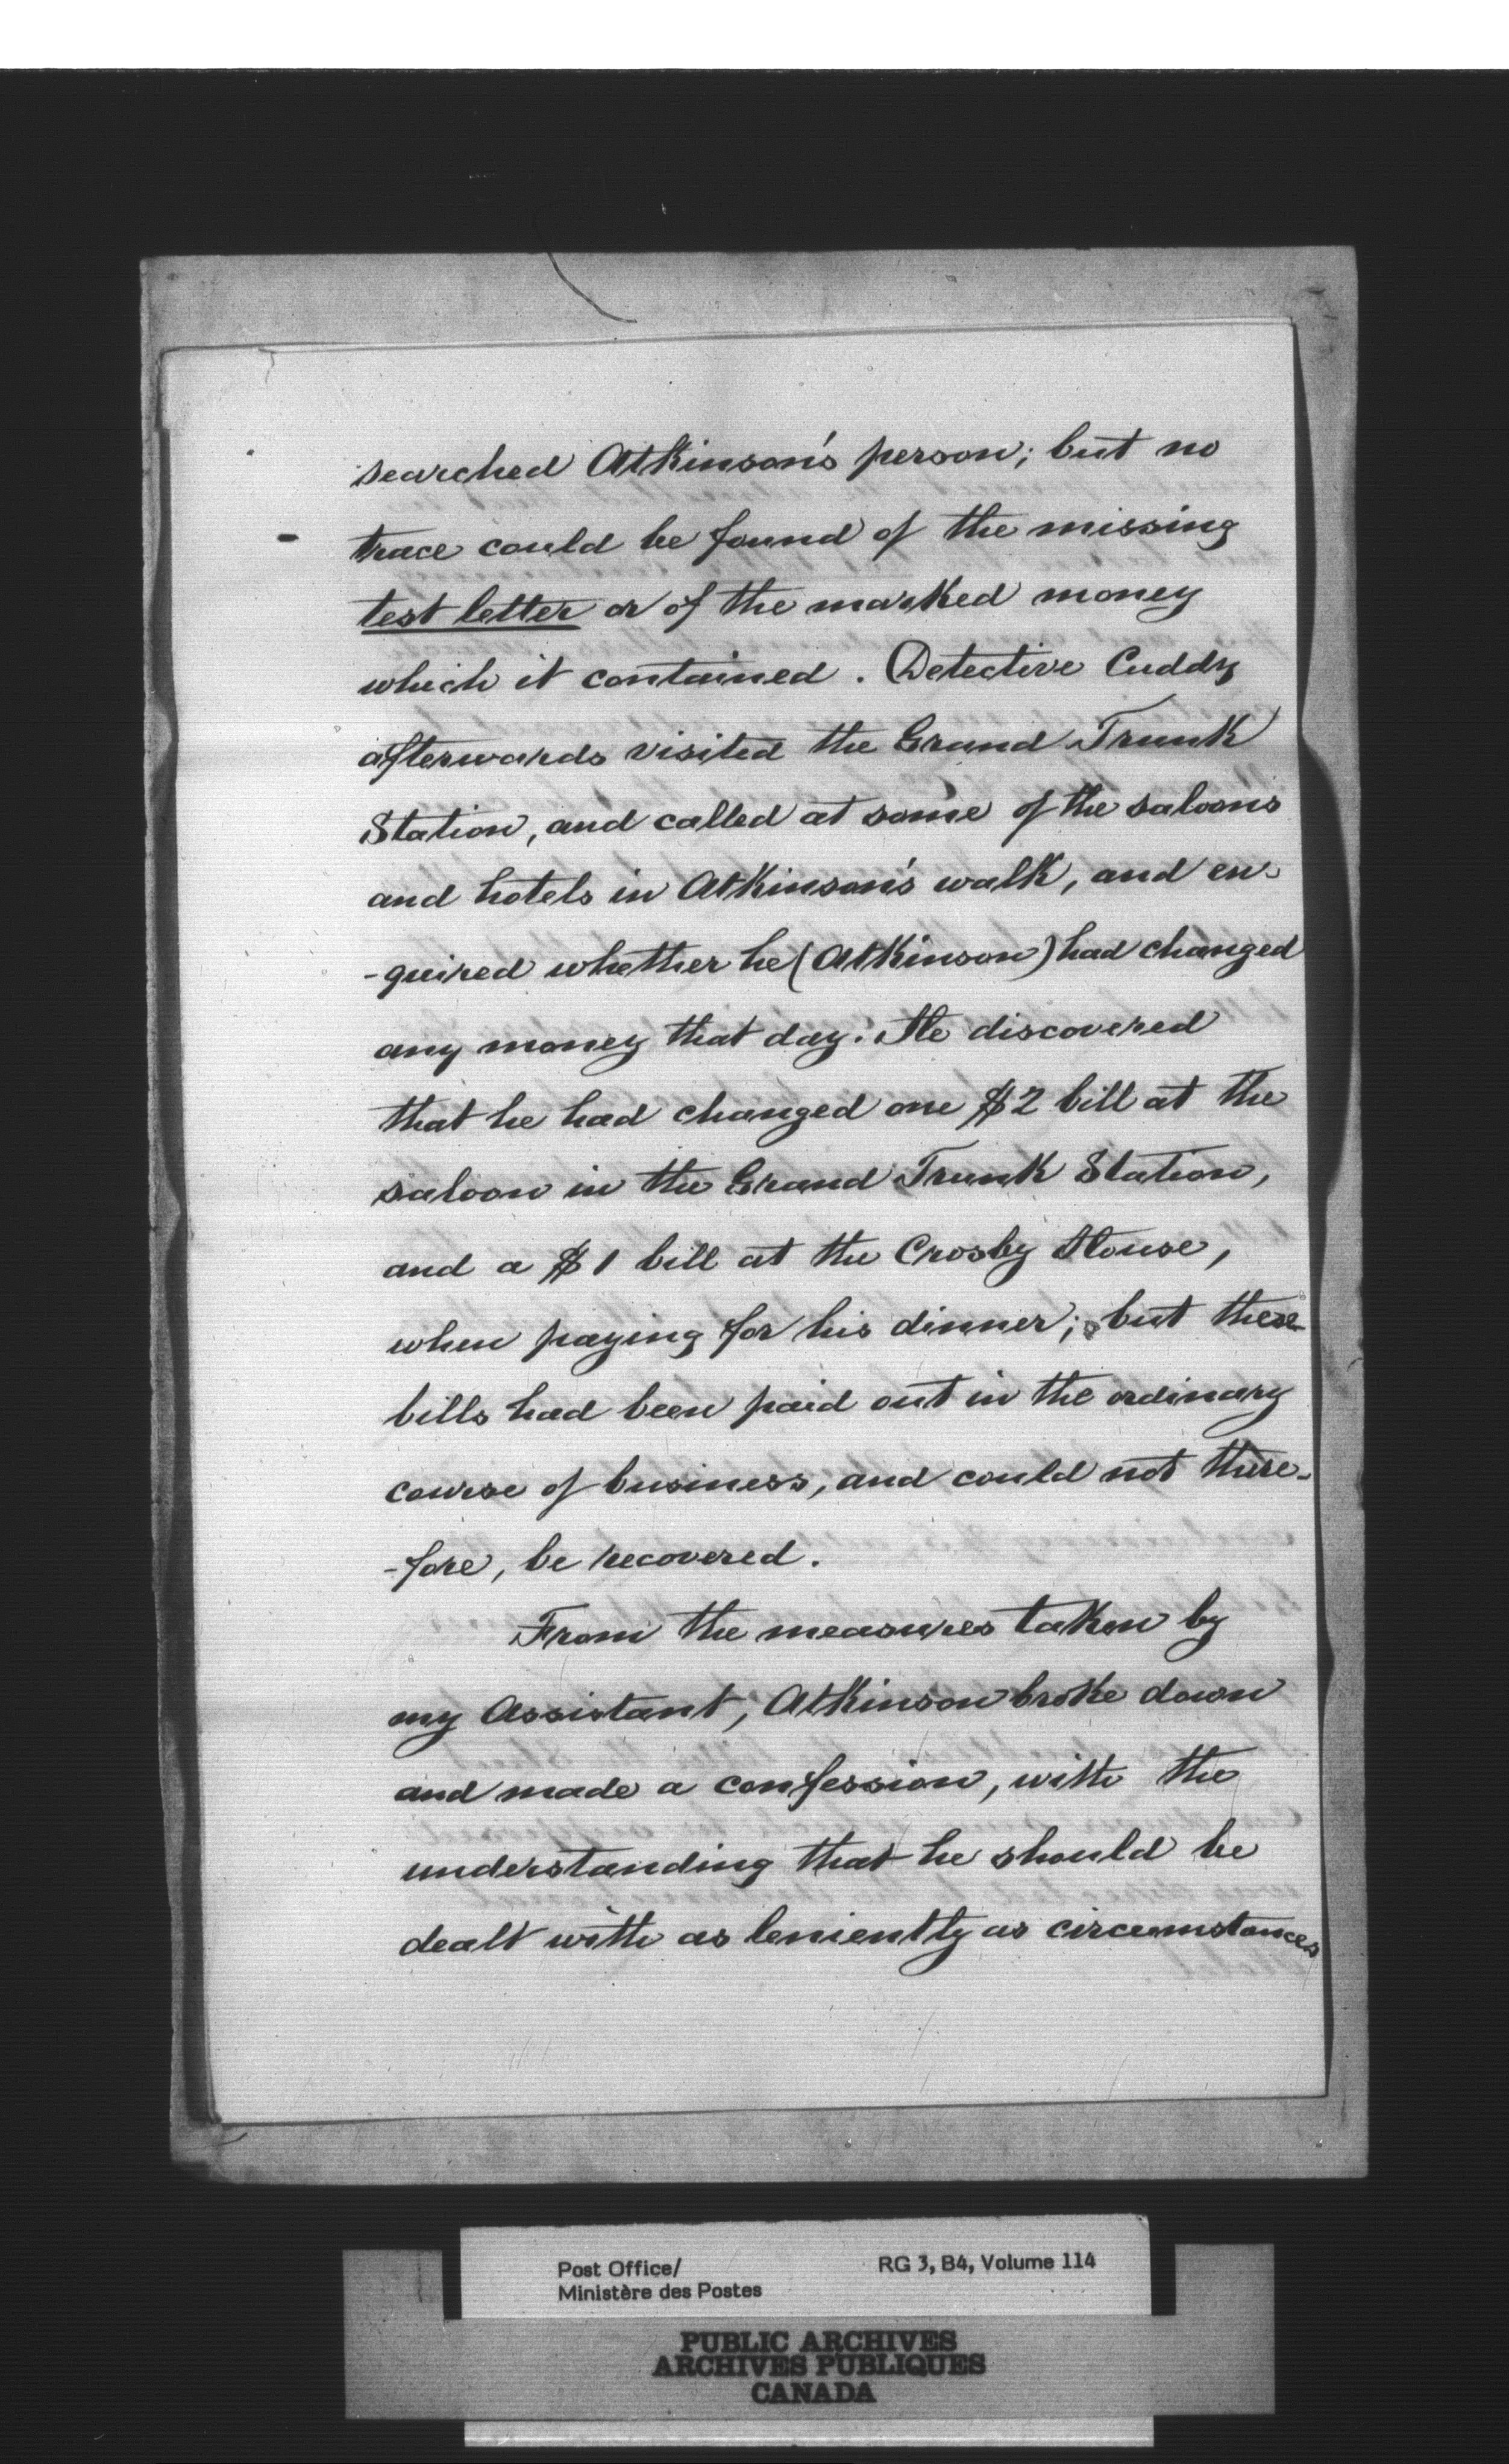 searched Atkinson's person; but no
trace could be found of the missing
test letter or of the marked money
which it contained. Detective Cuddy
afterwards visited the Grand Trunk
Station, and called at some of the saloons
and hotels in Atkinson's walk, and en-
-quired whether he (Atkinson) had changed
any money that day. He discovered
that he had changed one $2 bill at the
saloon in the Grand Trunk Station,
and a $1 bill at the Crosby House,
when paying for his dinner; but these
bills had been paid out in the ordinary
course of business, and could not there-
-fore, be recovered.
From the measures taken by
my Assistant, Atkinson broke down
and made a confession, with the
understanding that he should be
dealt with as leniently as circumstances
Post Office/
Ministère des Postes
RG 3, B4, Volume 114
PUBLIC ARCHIVES
ARCHIVES PUBLIQUES
CANADA